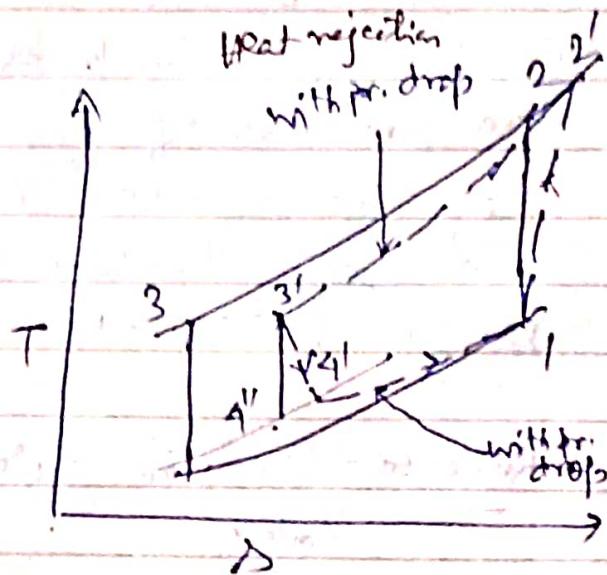 Heat rejection
with pr. drop
2 2'
3 3'
T
4' 1
4"
with pr.
drop
s